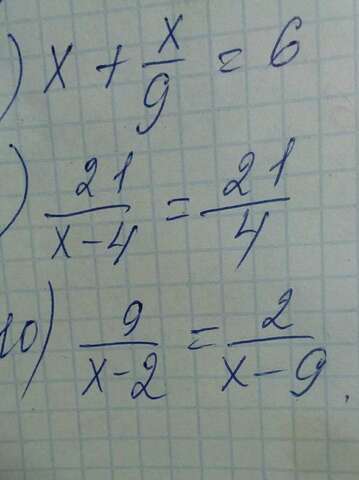 ) x + x/9 = 6
) 21/(x-4) = 21/4
10) 9/(x-2) = 2/(x-9).